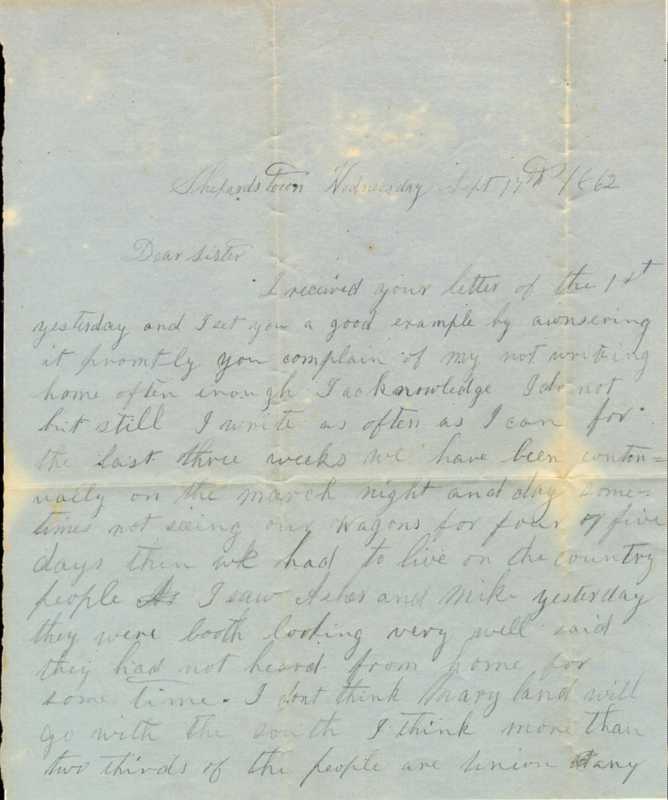 Shepardstown Wednesday Sept 17th 1862
Dear sister
I recived your letter of the 1st
yesterday and I set you a good example by awnsering
it promtly you complain of my not writing
home often enough I acknowledge I do not
but still I write as often as I can for
the last three weeks we have been conton=
ually on the march night and day some-
times not seeing our wagons for four or five
days then we had to live on the country
people I saw Asher and Mike yesterday
they were booth looking very well said
they had not heard from home for
some time. I dont think Mary land will
go with the south I think more than
two thirds of the people are Union any